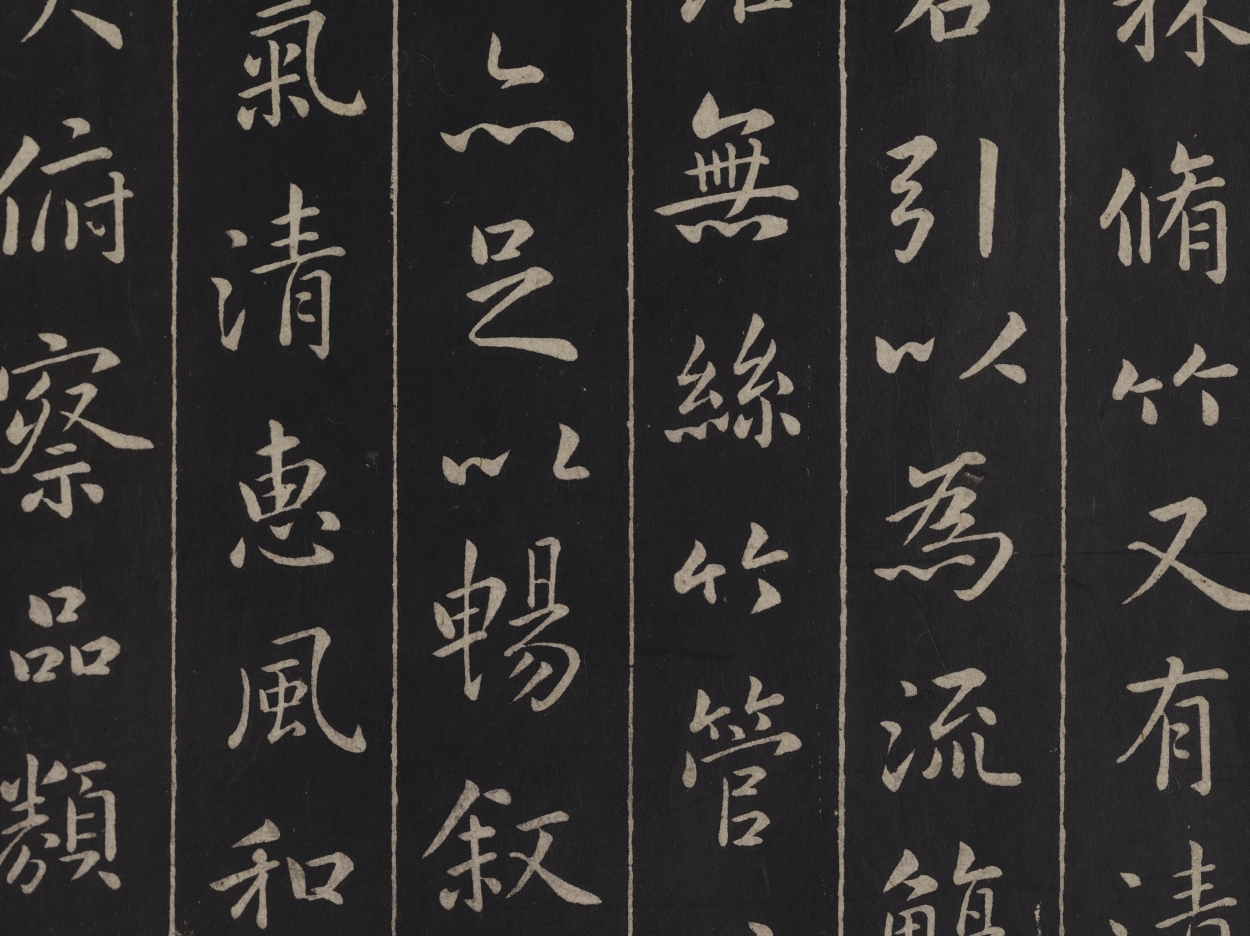 林脩竹又有清
右引以為流觴
雖無絲竹管
亦足以暢叙
氣清惠風和
大俯察品類